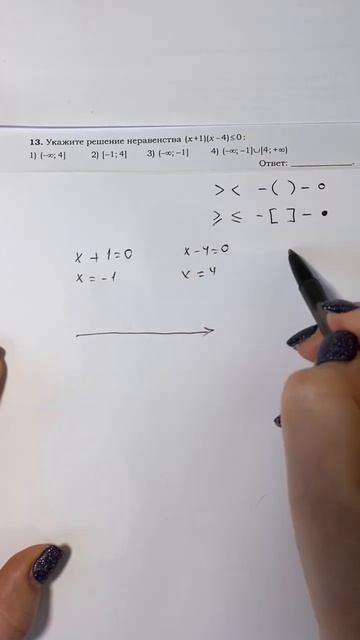 13. Укажите решение неравенства (x+1)(x−4)≤0:
1) (−∞; 4] 2) [−1; 4] 3) (−∞; −1] 4) (−∞; −1]∪[4; +∞)
Ответ: ____________.
> < - ( ) - ○
≥ ≤ - [ ] - ●
x + 1 = 0 x - 4 = 0
x = -1 x = 4